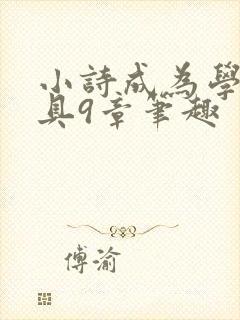 小詩成為學
具9章筆趣
傅渝